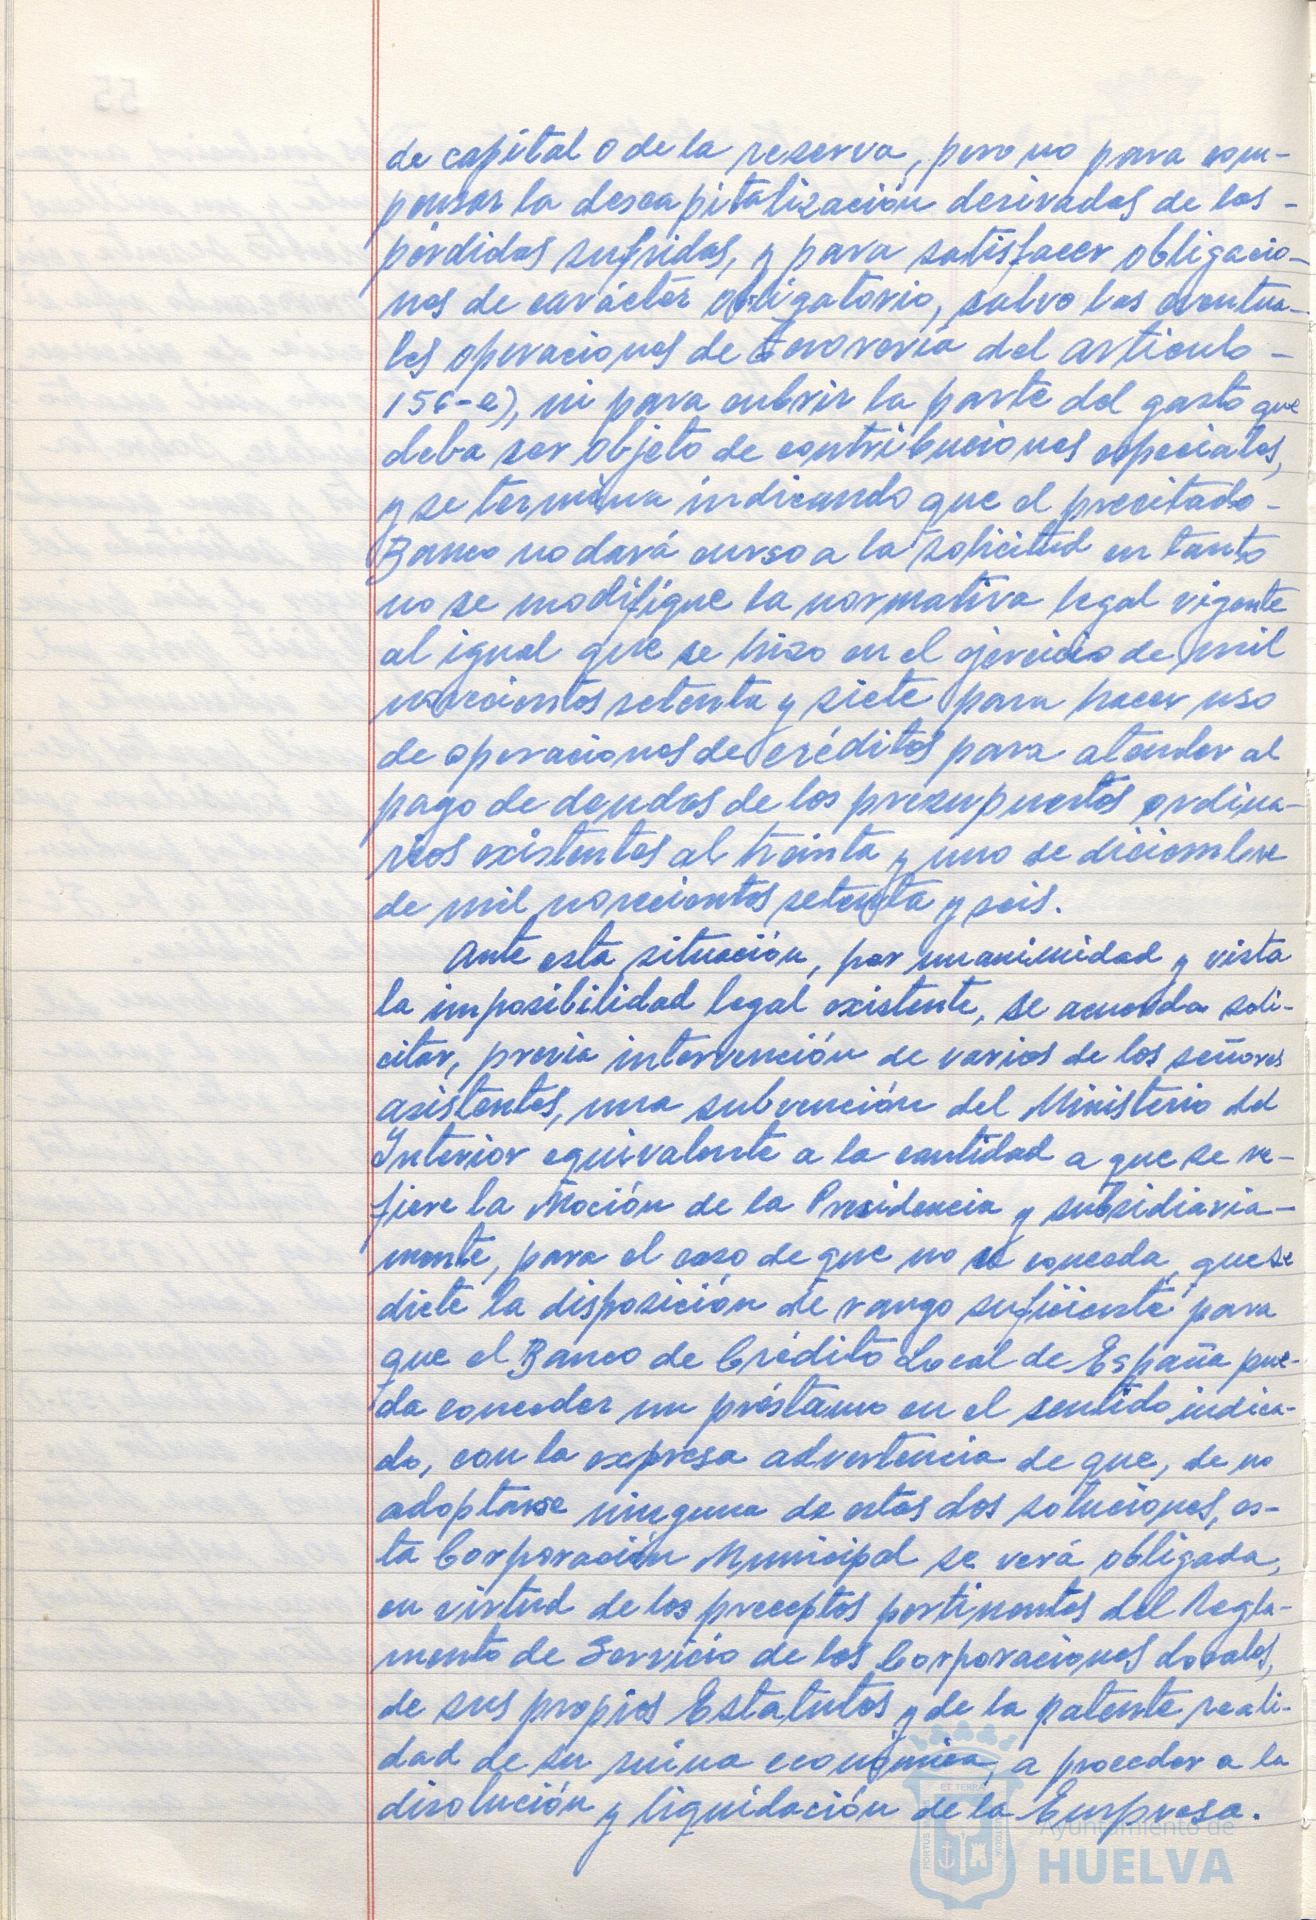 de capital o de la reserva, pero no para com-
pensar la descapitalización derivadas de las -
pérdidas sufridas, y para satisfacer obligacio-
nes de carácter obligatorio, salvo las eventua-
les operaciones de Tesorería del artículo -
156-a), ni para cubrir la parte del gasto que
deba ser objeto de contribuciones especiales,
y se termina indicando que el precitado -
Banco no dará curso a la solicitud en tanto
no se modifique la normativa legal vigente
al igual que se hizo en el ejercicio de mil
novecientos setenta y siete para hacer uso
de operaciones de créditos para atender al
pago de deudas de los presupuestos ordina-
rios existentes al treinta y uno de diciembre
de mil novecientos setenta y seis.
Ante esta situación, por unanimidad y vista
la imposibilidad legal existente, se acuerda soli-
citar, previa intervención de varios de los señores
asistentes, una subvención del Ministerio del
Interior equivalente a la cantidad a que se re-
fiere la Moción de la Presidencia y subsidiaria-
mente, para el caso de que no se conceda, que se
dicte la disposición de rango suficiente para
que el Banco de Crédito Local de España pue-
da conceder un préstamo en el sentido indica-
do, con la expresa advertencia de que, de no
adoptarse ninguna de estas dos soluciones, es-
ta Corporación Municipal se verá obligada,
en virtud de los preceptos pertinentes del Regla-
mento de Servicio de las Corporaciones Locales,
de sus propios Estatutos y de la patente reali-
dad de su ruina económica, a proceder a la
disolución y liquidación de la Empresa.
Ayuntamiento de
HUELVA